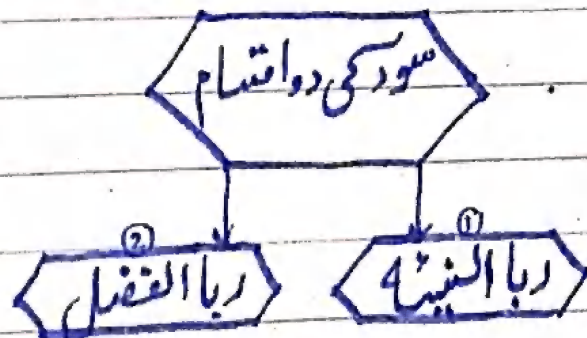 سود کی دو اقسام
① ربا النسیئہ
② ربا الفضل